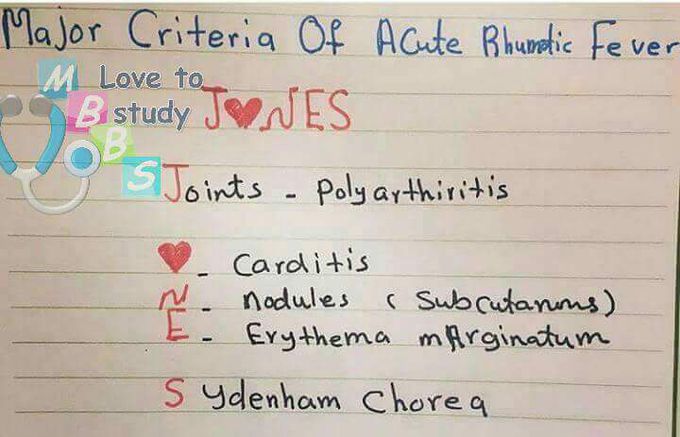 Major Criteria Of Acute Rhumatic Fever
M Love to
B study
B
S
J♥NES
Joints - Polyarthiritis
♥ - Carditis
N - nodules (Subcutanums)
E - Erythema mArginatum
Sydenham Chorea